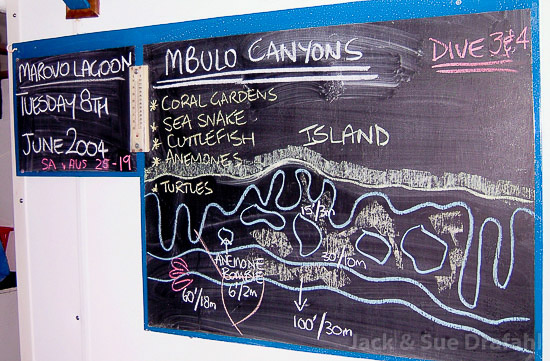 MAROVO LAGOON
TUESDAY 8TH
JUNE 2004
MBULO CANYONS
DIVE 3&4
* CORAL GARDENS
* SEA SNAKE
* CUTTLEFISH
* ANEMONES
* TURTLES
ISLAND
15'/3m
30'/10m
ANEMONE
BOMBIE
6'/2m
60'/18m
100'/30m
Jack & Sue Drafahl